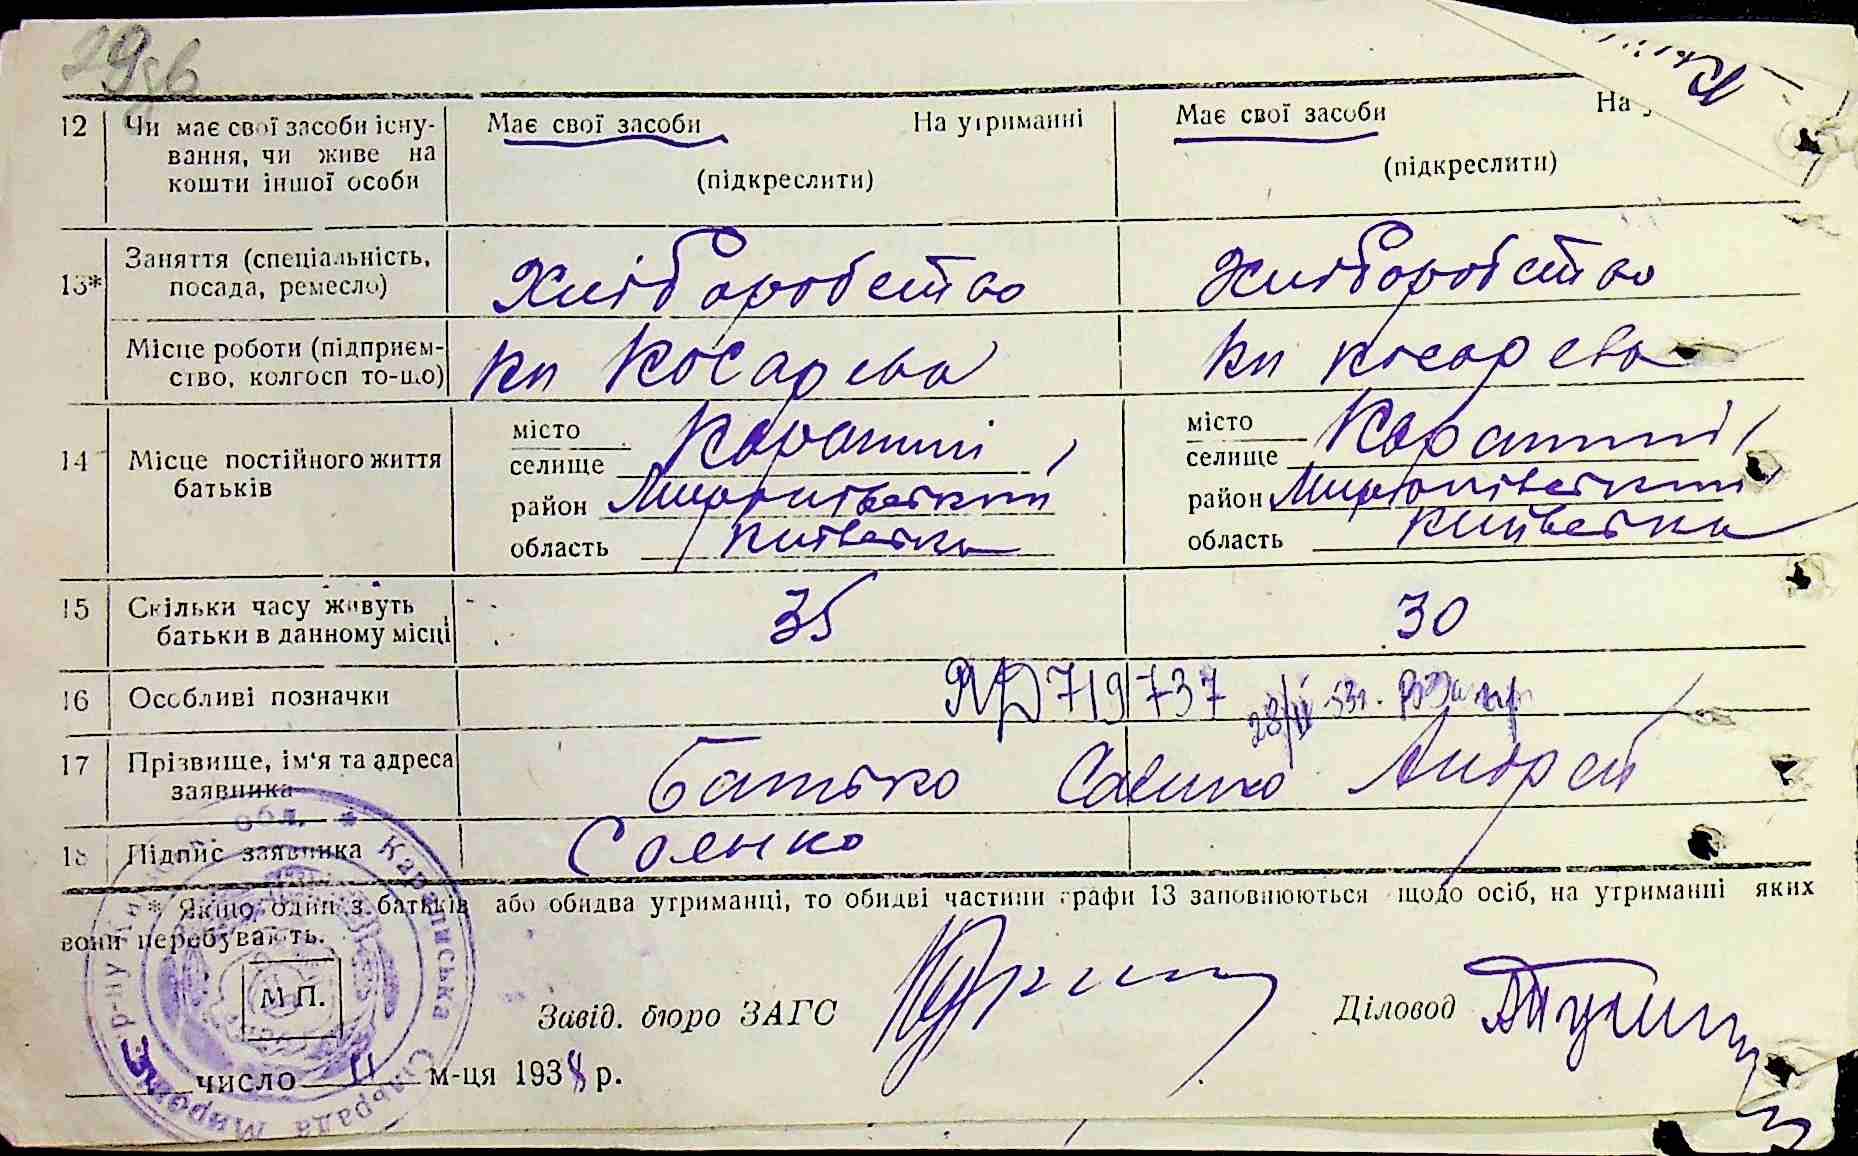 29зв
12 Чи має свої засоби існу- Має свої засоби На утриманні Має свої засоби На у
вання, чи живе на
кошти іншої особи (підкреслити) (підкреслити)
13* Заняття (спеціальність, Хліборобство Хліборобство
посада, ремесло)
Місце роботи (підприєм- Кп Косарева Кп Косарева
ство, колгосп то-що)
14 Місце постійного життя місто Карапиші, місто Карапиші,
батьків селище селище
район Миронівський район Миронівський
область Київська область Київська
15 Скільки часу живуть 35 30
батьки в данному місці
16 Особливі позначки 719737 53г.
17 Прізвище, ім'я та адреса Батько Саенко Андрей
заявника
18 Підпис заявника Саенко
* Якщо один з батьків або обидва утриманці, то обидві частини графи 13 заповнюються щодо осіб, на утриманні яких
вони перебувають.
М.П.
Завід. бюро ЗАГС Діловод
число 11 м-ця 1938 р.
обл. * Караписька Сільрада Миронів р-ну